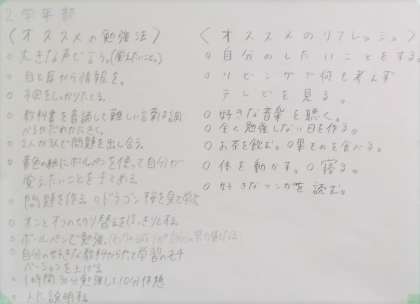 2学年部
〈オススメの勉強法〉
○大きな声で言う。(覚えたいこと。)
○目と耳から情報を。
○予定をしっかりたてる。
○教科書を音読して難しい言葉は調
べるかだめだときく。
○2人がけで問題を出し合う。
○黄色の紙にボールペンを使って自分が
覚えたいことをまとめる
○問題を作る ○ドラゴン桜を見て学ぶ
○オンとオフの切り替えを はっきりとする
○ボールペンで勉強。
○自分の好きな教科からたて学習のモチ
ベーションを上げる
○1時間30分勉強して10分休憩
○人に説明する
〈オススメのリフレッシュ〉
○自分のしたいことをする。
○リビングで何も考えず
テレビを見る。
○好きな音楽を聴く。
○全く勉強しない日を作る。
○お茶を飲む。○果ものを食べる。
○体を動かす。○寝る。
○好きなマンガを読む。